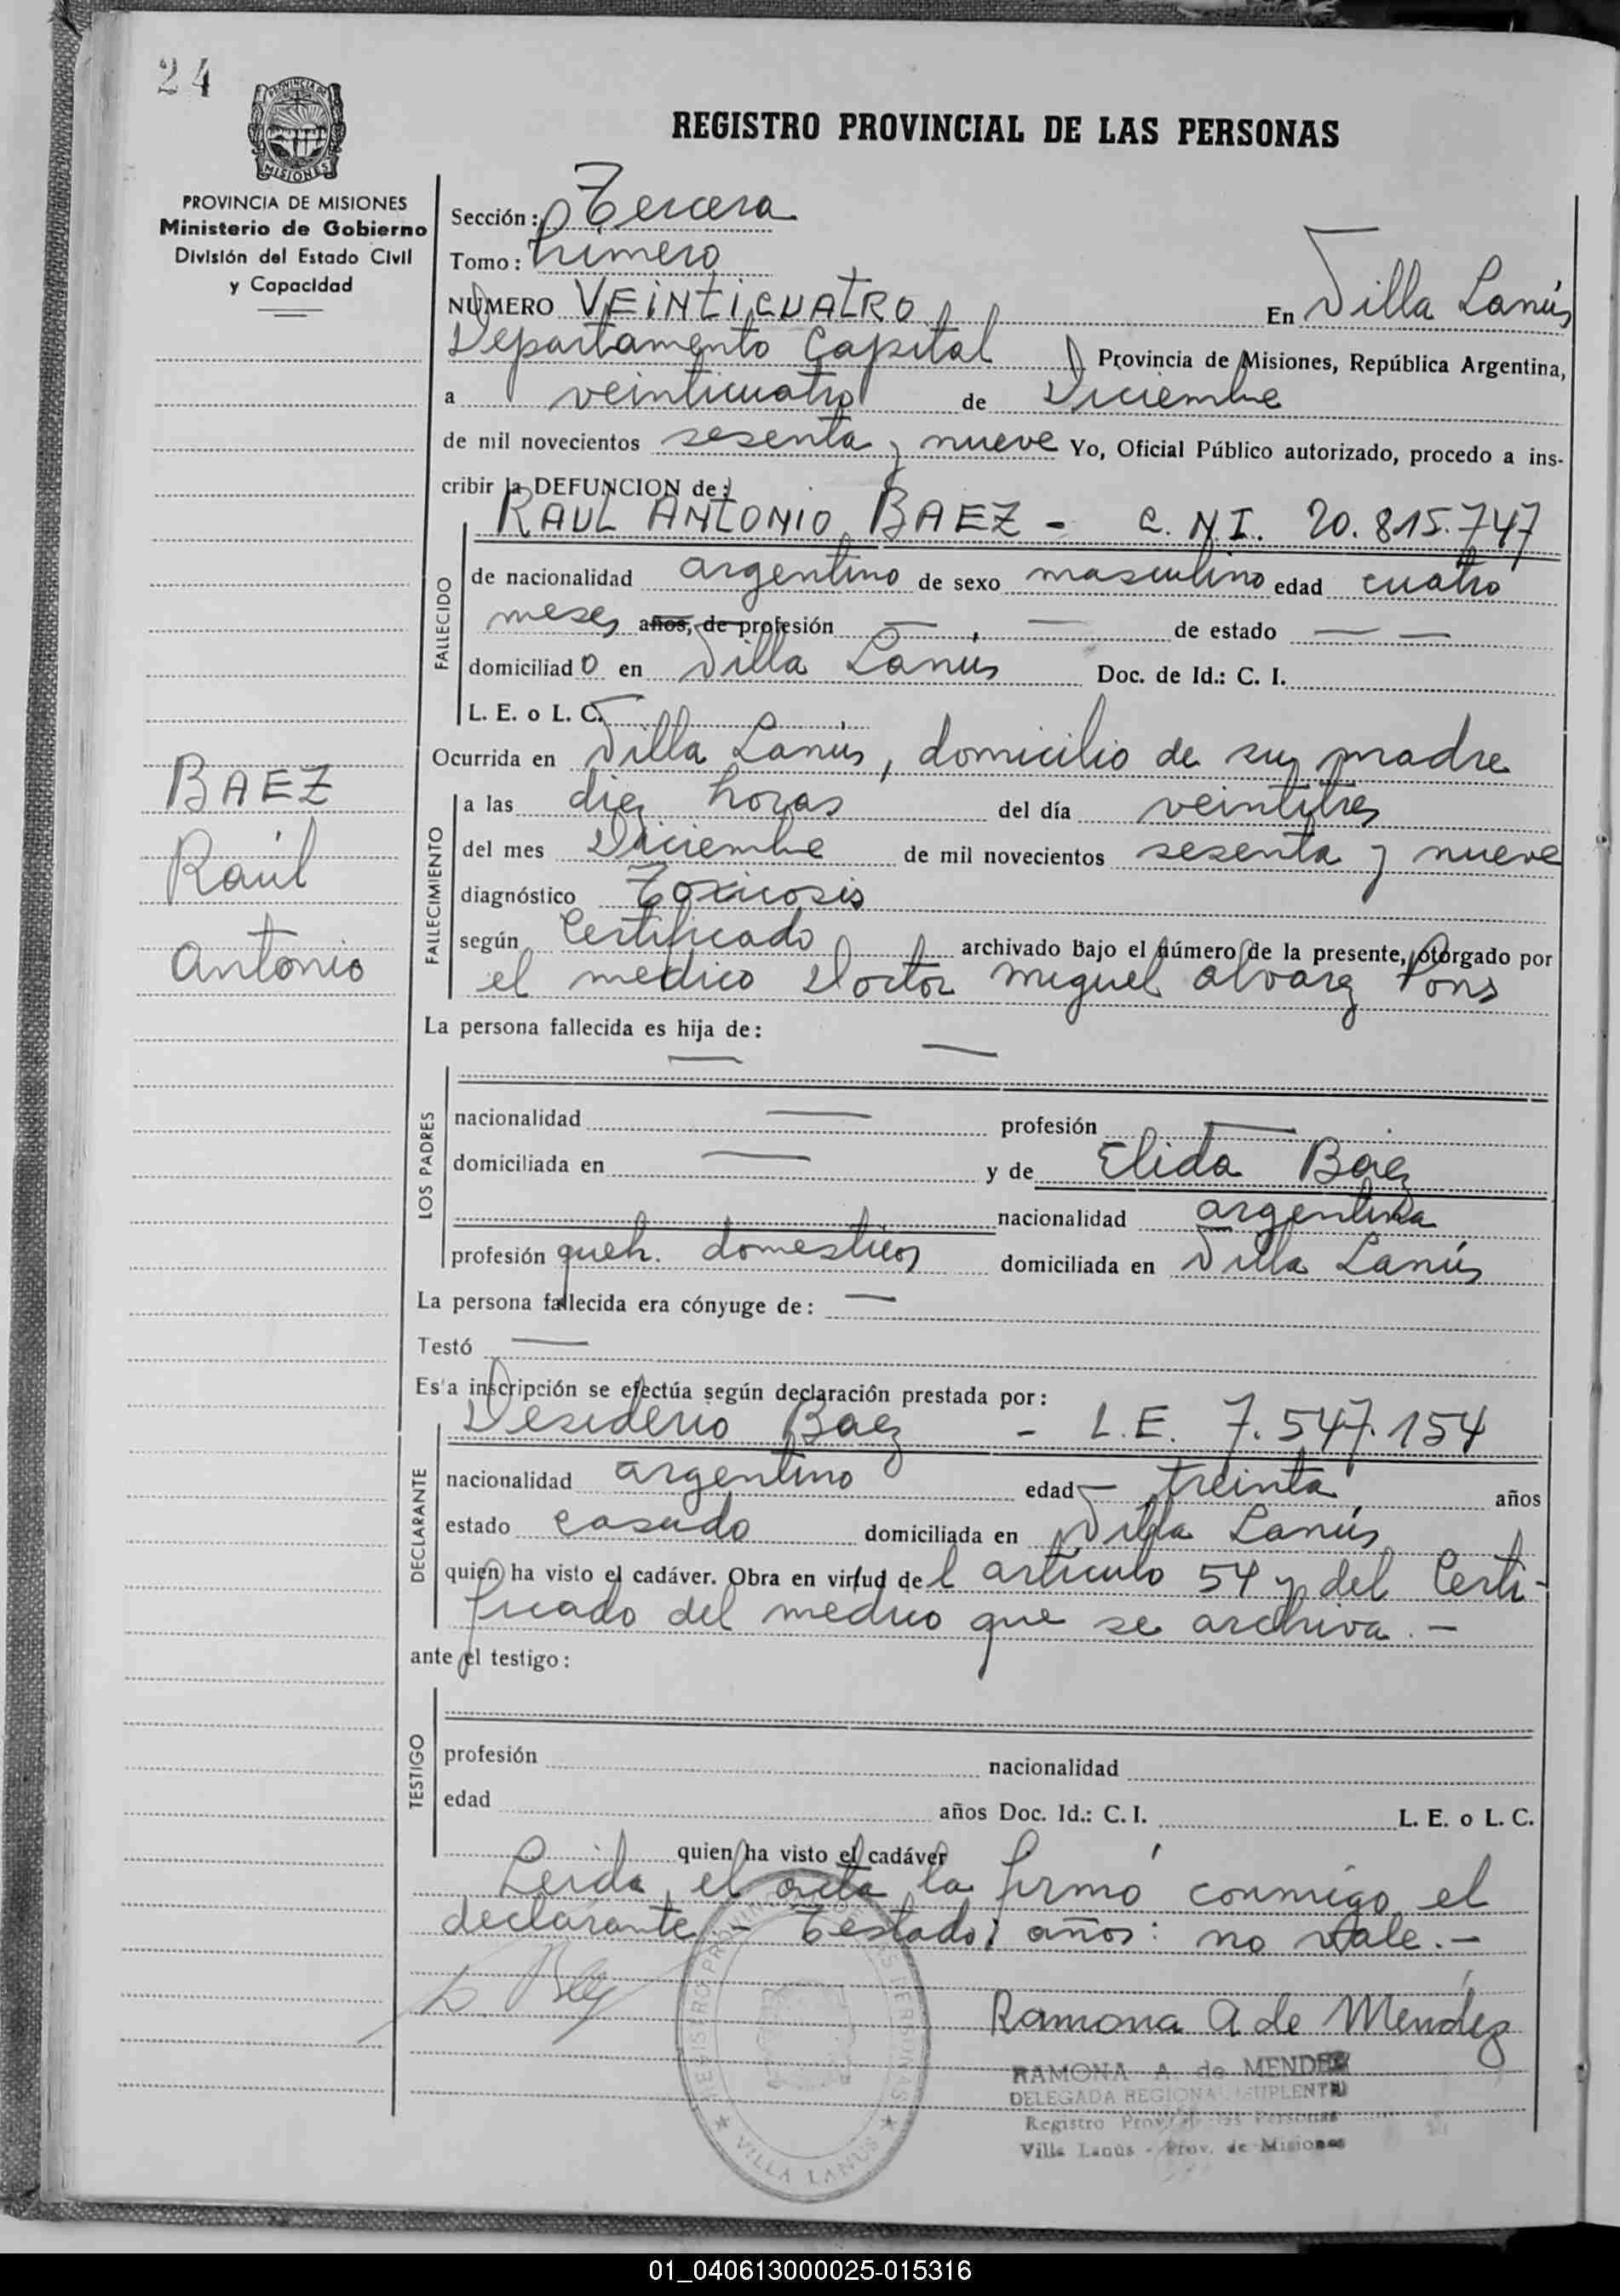 24
PROVINCIA DE
MISIONES
REGISTRO PROVINCIAL DE LAS PERSONAS
PROVINCIA DE MISIONES
Ministerio de Gobierno
División del Estado Civil
y Capacidad
Sección: Tercera
Tomo: Primero
NUMERO VEINTICUATRO En Villa Lanús
Departamento Capital Provincia de Misiones, República Argentina,
a veinticuatro de Diciembre
de mil novecientos sesenta y nueve Yo, Oficial Público autorizado, procedo a ins-
cribir la DEFUNCION de:
RAUL ANTONIO BAEZ - C.N.I. 20.815.747
FALLECIDO
de nacionalidad argentino de sexo masculino edad cuatro
meses años, de profesión — , — de estado — —
domiciliado en Villa Lanús Doc. de Id.: C. I.
L. E. o L. C.
Ocurrida en Villa Lanús, domicilio de su madre
BAEZ
Raúl
Antonio
FALLECIMIENTO
a las diez horas del día veintitres
del mes Diciembre de mil novecientos sesenta y nueve
diagnóstico Toxicosis
según Certificado archivado bajo el número de la presente, otorgado por
el medico Doctor Miguel Alvarez Pons
La persona fallecida es hija de:
— —
LOS PADRES
nacionalidad — profesión —
domiciliada en — y de Elida Baez
nacionalidad argentina
profesión queh. domesticos domiciliada en Villa Lanús
La persona fallecida era cónyuge de: —
Testó —
Es'a inscripción se efectúa según declaración prestada por:
Desiderio Baez - L.E. 7.547.154
DECLARANTE
nacionalidad argentino edad treinta años
estado casado domiciliada en Villa Lanús
quien ha visto el cadáver. Obra en virtud del articulo 54 y del Certi-
ficado del medico que se archiva.-
ante el testigo:
TESTIGO
profesión nacionalidad
edad años Doc. Id.: C. I. L. E. o L. C.
quien ha visto el cadáver
Leida el acta la firmó conmigo el
declarante - Testado: años: no vale.-
Ramona A de Mendez
RAMONA A. de MENDEZ
DELEGADA REGIONAL SUPLENTE
Registro Prov. de las Personas
Villa Lanús - Prov. de Misiones
VILLA LANUS
01_040613000025-015316